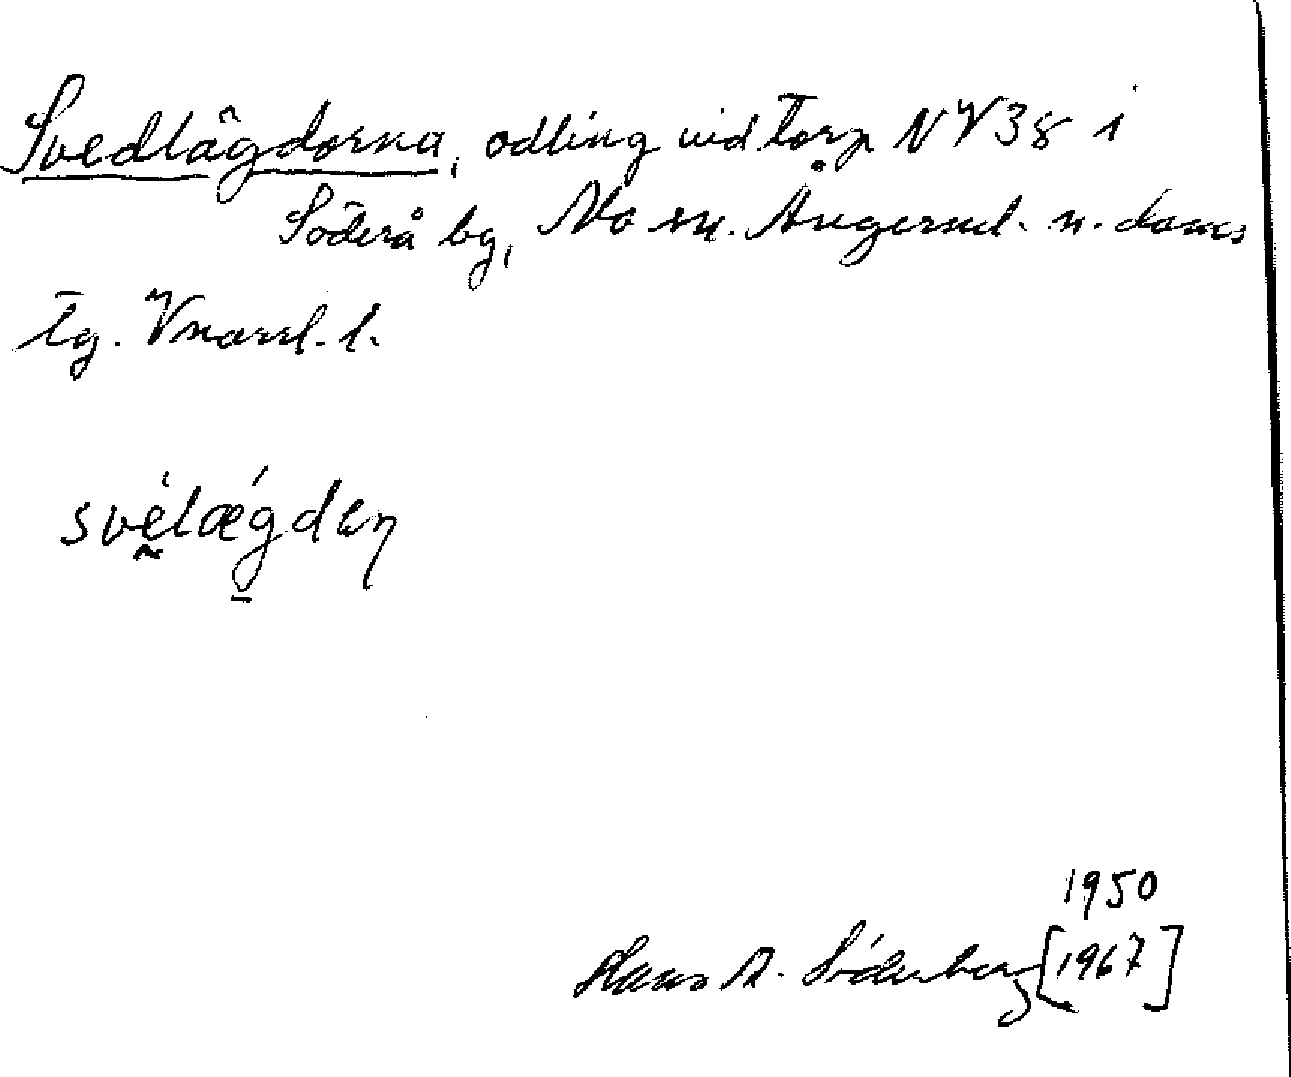 Svedlägdorna, odling vid torp NV38 i
Söderå by, No sn. Ångerml. n. doms
tg. Vnorrl. l.
své̱lǽgdeṇ
1950
Hans A. Söderberg [1967]